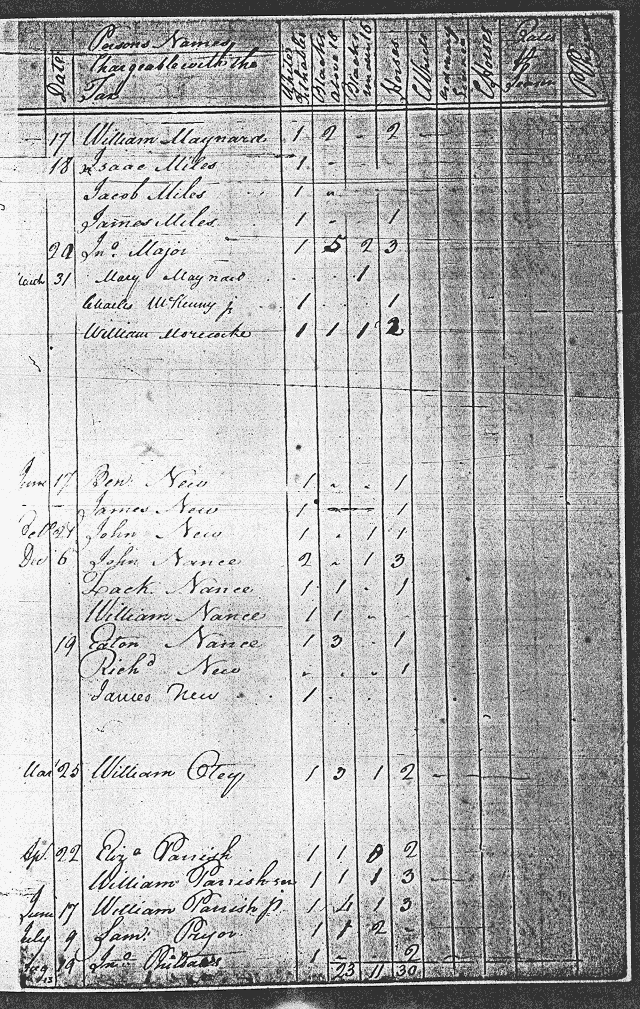 Date Persons Names Chargeable with the Tax White Tithables Blacks above 18 Blacks under 16 Horses
17 William Maynard 1 2 - 2
18 Isaac Miles 1 -
Jacob Miles 1 -
James Miles 1 - - 1
20 Jno Major 1 5 2 3
March 31 Mary Maynard - - 1
Charles McKenny jr 1 - - 1
William Morecocke 1 1 1 2
June 17 Ben. New 1 - - 1
James New 1 — 1
Feb 27 John New 1 - 1 1
Dec 6 John Nance 2 - 1 3
Zack Nance 1 1 - 1
William Nance 1 1 -
19 Eaton Nance 1 3 - 1
Richd New - - - 1
James New 1 - -
Mar 25 William Otey 1 3 1 2
Apl. 22 Eliza Parrish 1 1 0 2
William Parrish sen 1 1 1 3
June 17 William Parrish jr 1 4 1 3
July 9 Saml. Pryor 1 1 2 -
Aug 19 Jno 1 - - 2
23 11 30